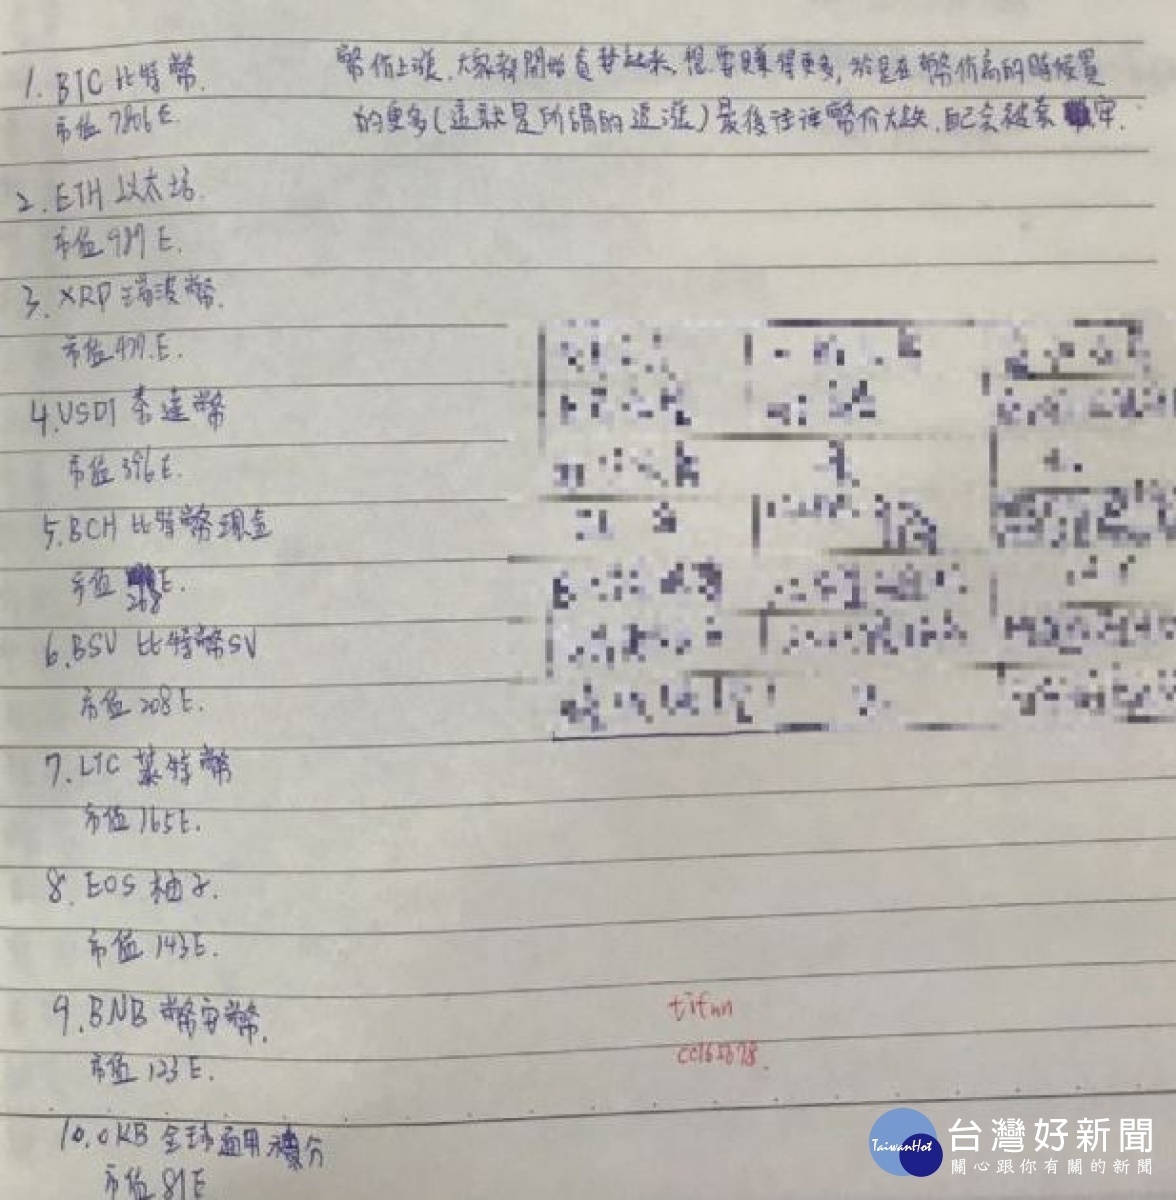 1. BTC 比特幣.
幣價上漲,大家都開始貪婪起來,想要賺得更多,於是在幣價高的時候買
市值 7806E
的更多(這就是所謂的追漲)最後往往幣價大跌,自己会被套牢.
2. ETH 以太坊.
市值 987 E.
3. XRP 瑞波幣.
市值 477.E.
4. USDT 泰達幣
市值 396E.
5. BCH 比特幣現金
市值 268E.
6. BSV 比特幣SV
市值 208E.
7. LTC 萊特幣
市值 165E.
8. EOS 柚子.
市值 143E.
9. BNB 幣安幣.
tifun
市值 123E.
cc165678.
10. OKB 全球通用積分
市值 81E
TaiwanHot
台灣好新聞
關心跟你有關的新聞